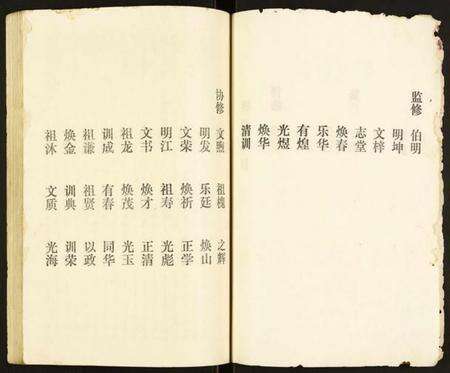 监修 伯明
明坤
文梓
志堂
焕春
乐华
有煌
光煜
焕华
清训
协修 文煦 祖槐 之辉
明发 乐廷 焕山
文荣 焕祈 正学
明江 祖寿 光彪
文书 焕才 正清
祖龙 焕茂 光玉
训成 有春 同华
祖谦 祖贤 以政
焕金 训典 训荣
祖沐 文质 光海